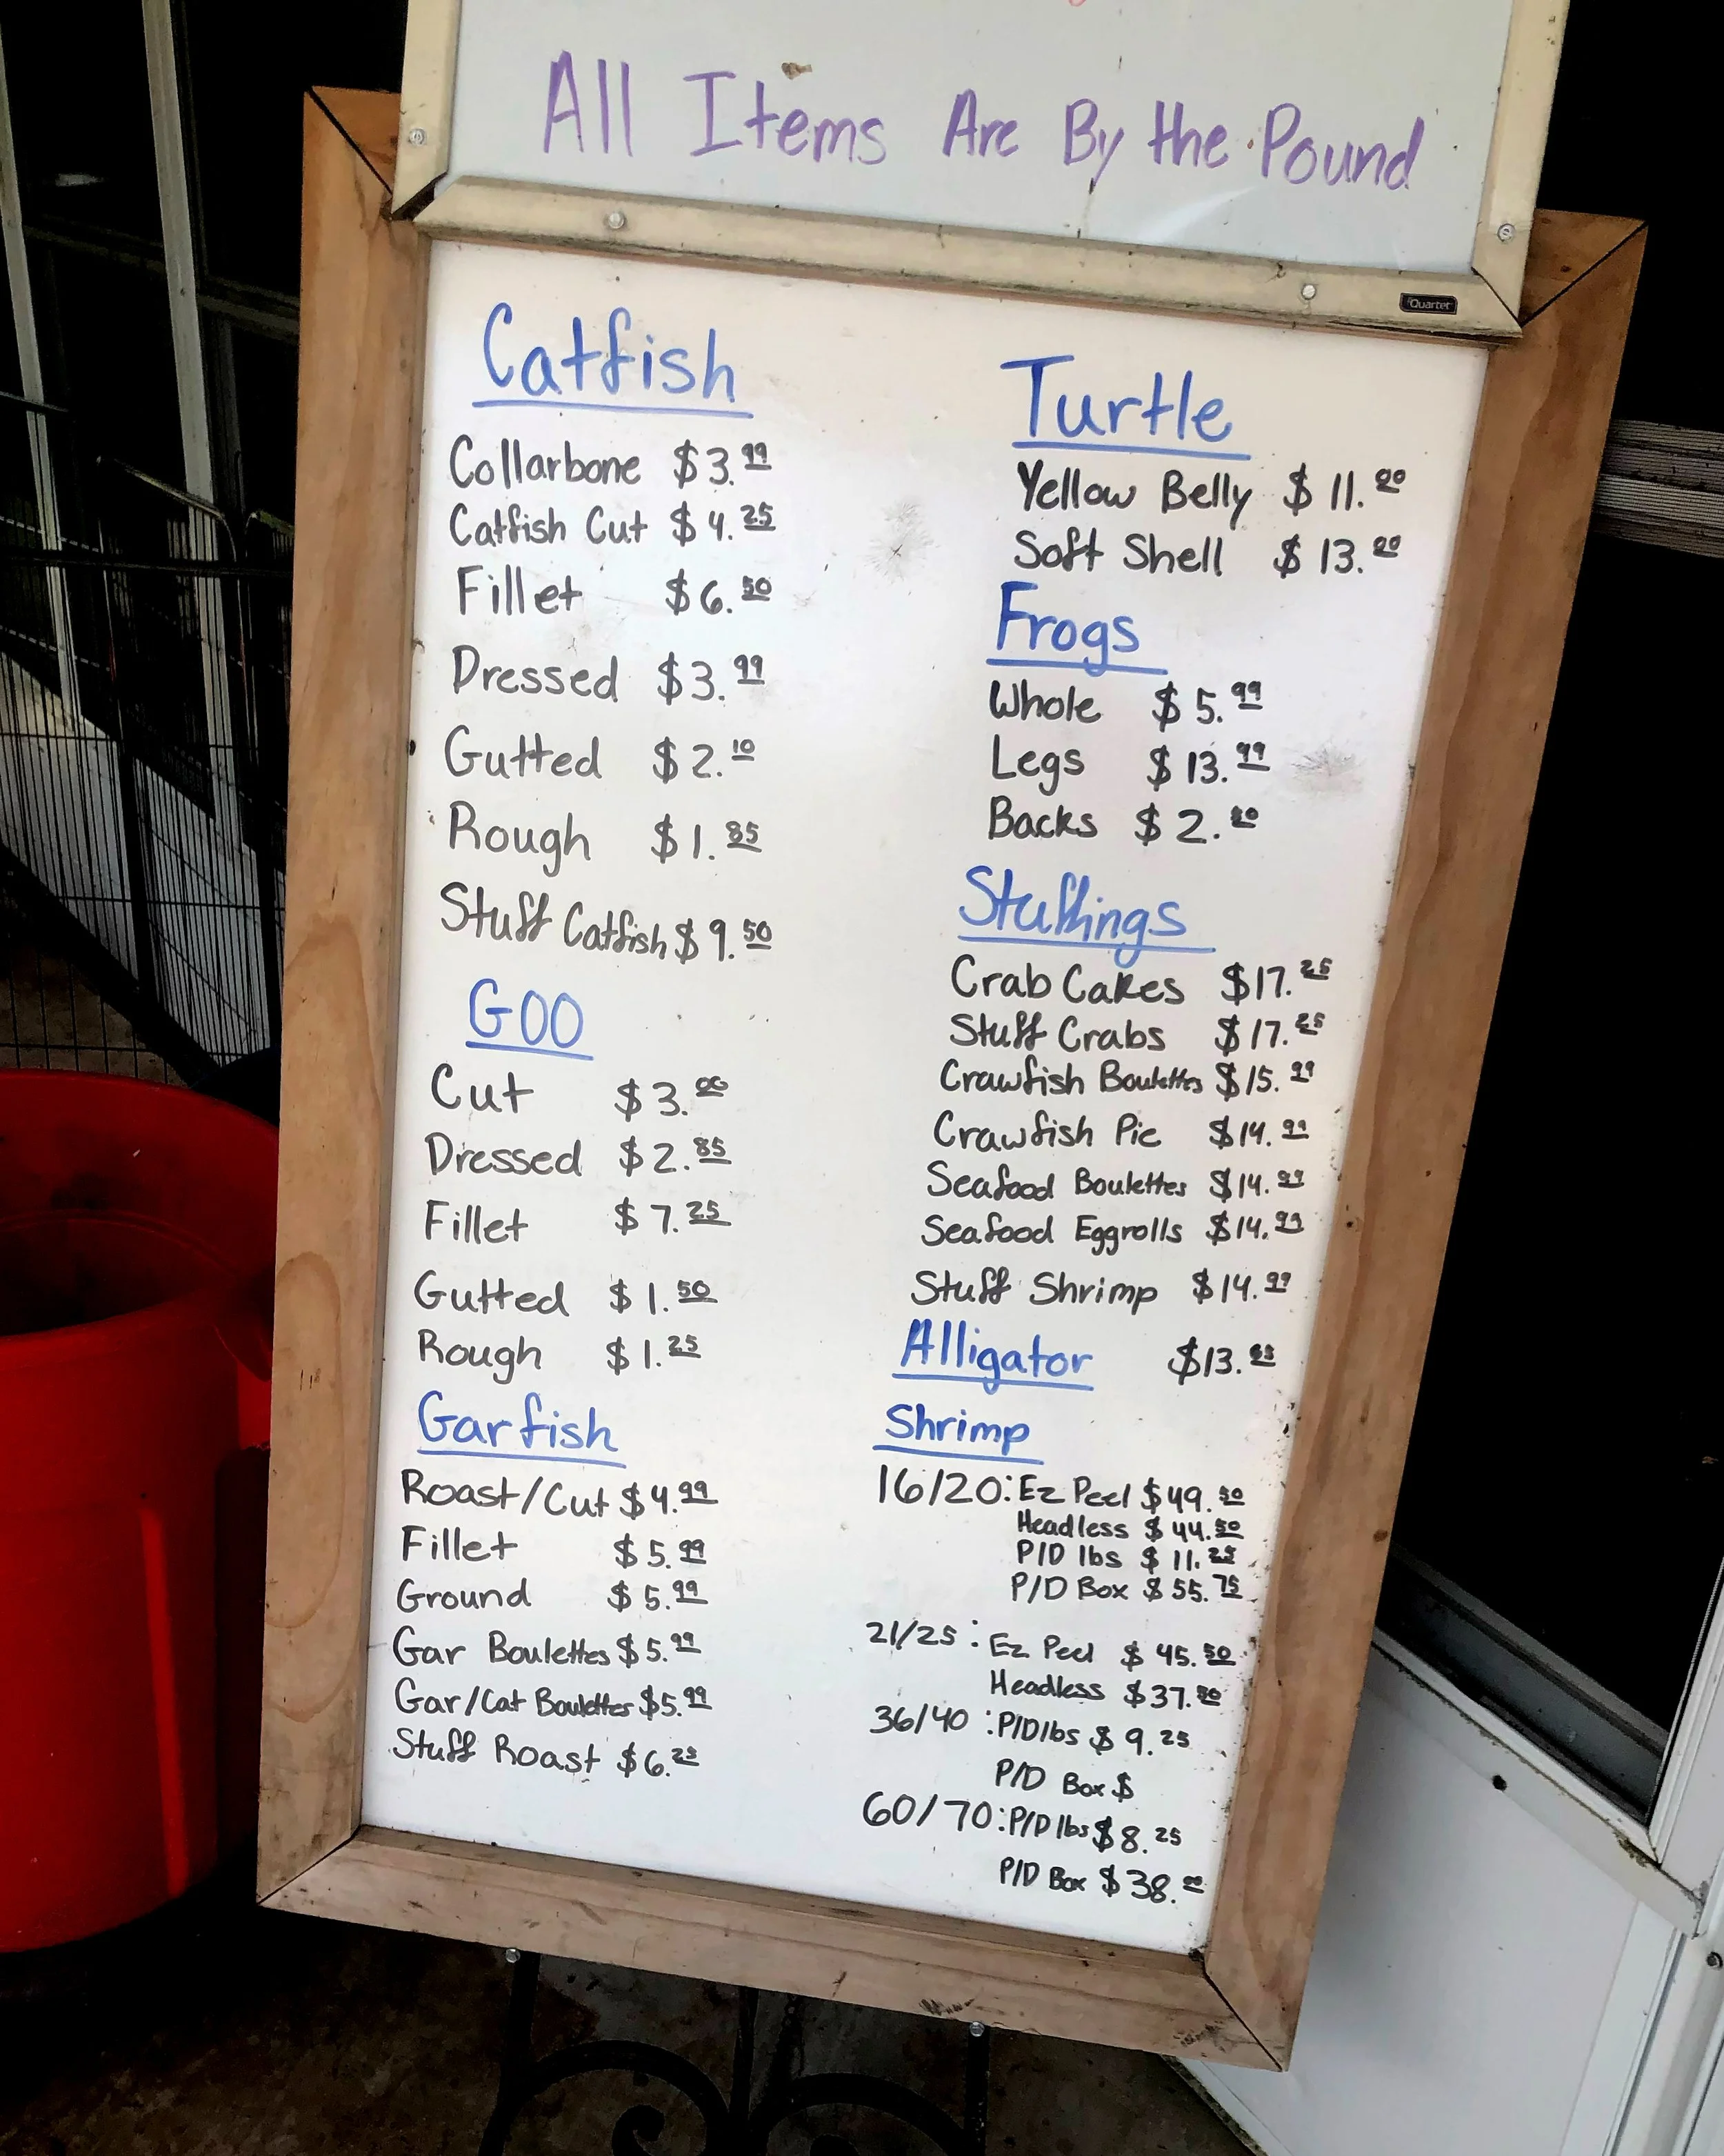 All Items Are By the Pound
Quartet
Catfish
Collarbone $3.99
Catfish Cut $4.25
Fillet $6.50
Dressed $3.99
Gutted $2.10
Rough $1.85
Stuff Catfish $9.50
GOO
Cut $3.00
Dressed $2.85
Fillet $7.25
Gutted $1.50
Rough $1.25
Garfish
Roast/Cut $4.99
Fillet $5.99
Ground $5.99
Gar Boulettes $5.99
Gar/Cat Boulettes $5.99
Stuff Roast $6.25
Turtle
Yellow Belly $11.00
Soft Shell $13.00
Frogs
Whole $5.99
Legs $13.99
Backs
Stuffings
Crab Cakes $17.25
Stuff Crabs $17.25
Crawfish Boulettes $15.99
Crawfish Pie $14.99
Seafood Boulettes $14.99
Seafood Eggrolls $14.99
Stuff Shrimp $14.99
Alligator
Shrimp
16/20: Ez Peel $49.50
Headless $44.50
P/D lbs $11.25
P/D Box $55.75
21/25: Ez Peel $45.50
Headless
36/40: P/D lbs $9.25
P/D Box $
60/70: P/D lbs $8.25
P/D Box $38.00